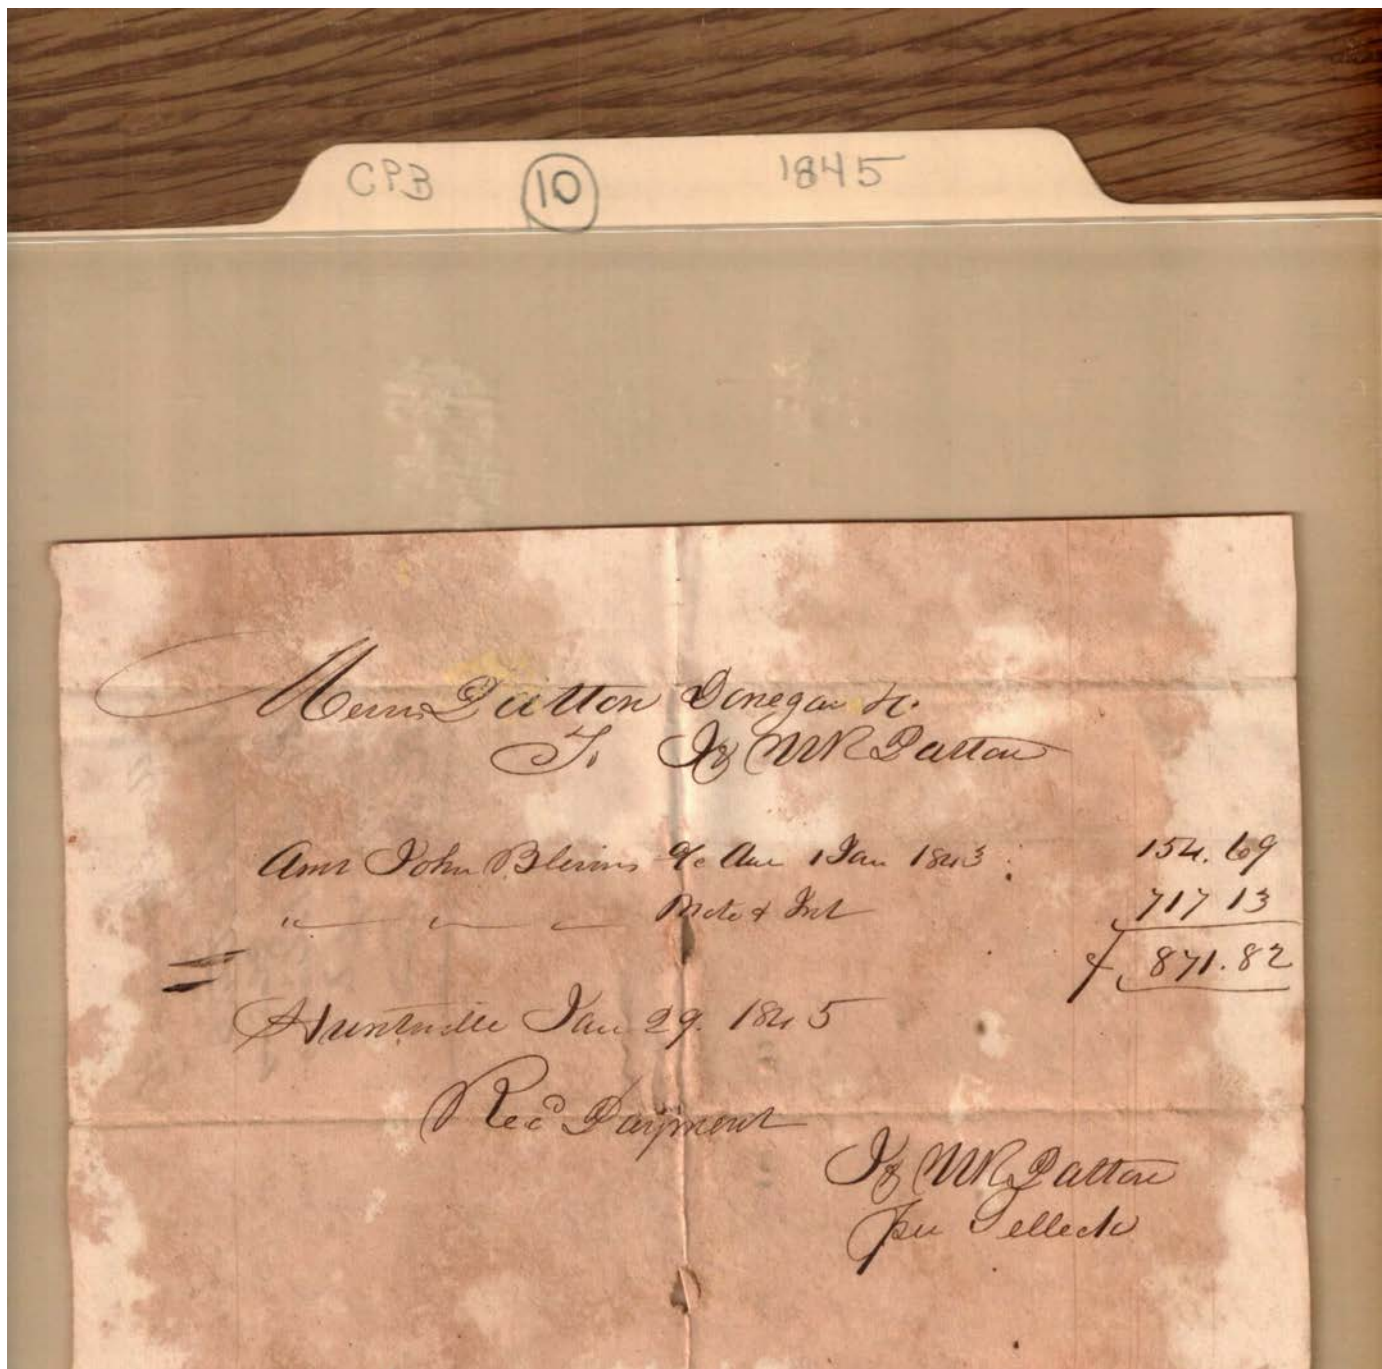 CPB 10 1845
Messrs Patton Donegan &c.
To J & W R Patton
Amt John Blevins a/c due 1 Jan 1843 154.69
" " " Note & Int 717 13
$ 871.82
Huntsville Jan 29. 1845
Rec'd Payment
J & W R Patton
per